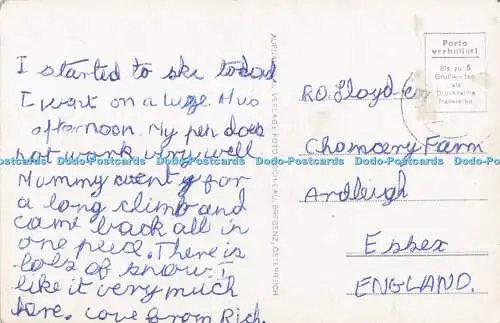 I started to ski today
I went on a luge this
afternoon. My pen does
not work very well
Mummy went for
a long climb and
came back all in
one piece. There is
lots of snow. I
like it very much
here. love from Rich.
R.O. Lloyd
Chancery Farm
Ardleigh
Essex
ENGLAND.
Porto
verbilligt!
Bis zu 5
Grußworten
als
Drucksache
frankieren
Dodo-Postcards Dodo-Postcards Dodo-Postcards Dodo-Postcards Dodo-Postcards Dodo-Postcards